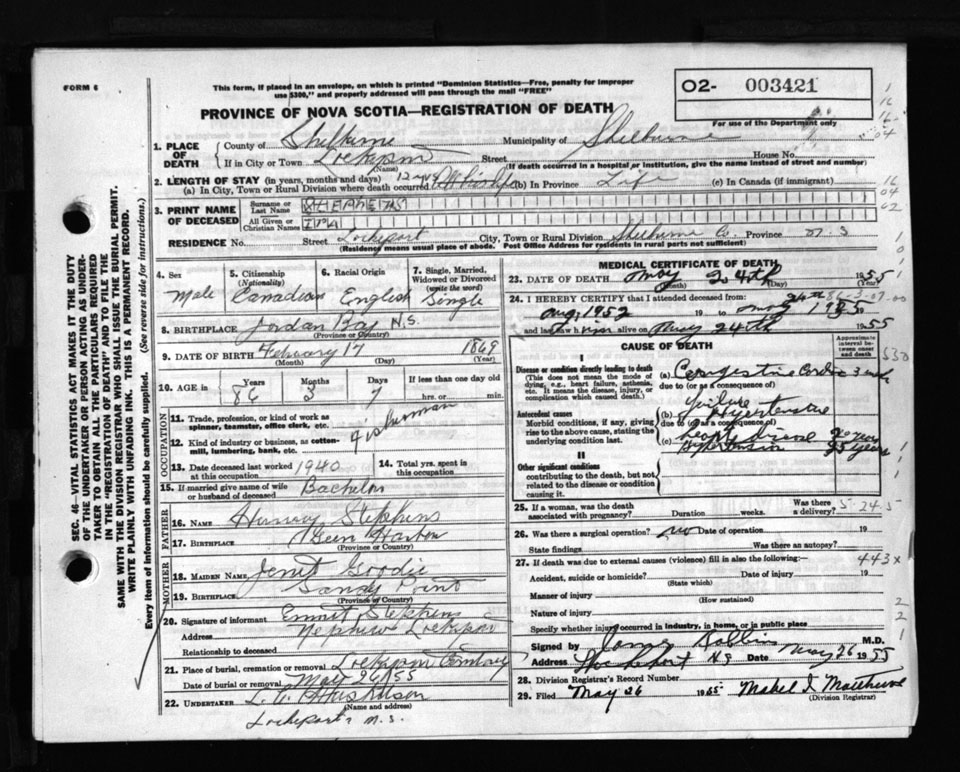 FORM 6
This form, if placed in an envelope, on which is printed "Dominion Statistics—Free, penalty for improper
use $300," and properly addressed will pass through the mail "FREE"
02- 003421
For use of the Department only
PROVINCE OF NOVA SCOTIA—REGISTRATION OF DEATH
1. PLACE OF DEATH
County of Shelburne Municipality of Shelburne
If in City or Town Lockeport Street House No.
(Name) (If death occurred in a hospital or institution, give the name instead of street and number)
2. LENGTH OF STAY (in years, months and days)
(a) In City, Town or Rural Division where death occurred (b) In Province Life (c) In Canada (if immigrant)
3. PRINT NAME OF DECEASED
Surname or Last Name STEPHENS
All Given or Christian Names IRA
RESIDENCE No. Street Lockeport City, Town or Rural Division Shelburne Co. Province N.S
(Residency means usual place of abode. Post Office Address for residents in rural parts not sufficient)
4. Sex Male
5. Citizenship (Nationality) Canadian
6. Racial Origin English
7. Single, Married, Widowed or Divorced (write the word) Single
8. BIRTHPLACE Jordan Bay N.S.
(Province or Country)
9. DATE OF BIRTH February 17 1869
(Month) (Day) (Year)
10. AGE in Years Months Days If less than one day old
86 3 7 hrs. or min.
OCCUPATION
11. Trade, profession, or kind of work as spinner, teamster, office clerk, etc.
Fisherman
12. Kind of industry or business, as cotton-mill, lumbering, bank, etc.
13. Date deceased last worked at this occupation. 1940
14. Total yrs. spent in this occupation
15. If married give name of wife or husband of deceased Bachelor
FATHER
16. NAME Stephens
17. BIRTHPLACE
(Province or Country)
MOTHER
18. MAIDEN NAME
19. BIRTHPLACE Sandy Point
(Province or Country)
20. Signature of informant Stephens
Address Lockeport
Relationship to deceased Nephew
21. Place of burial, cremation or removal Lockeport
Date of burial or removal May 26/55
22. UNDERTAKER
(Name and address)
Lockeport N.S.
MEDICAL CERTIFICATE OF DEATH
23. DATE OF DEATH May 24th 1955
(Month) (Day)
24. I HEREBY CERTIFY that I attended deceased from:
Aug 1952 19 to May 24th 1955 19
and last saw him alive on May 24th 1955
CAUSE OF DEATH
Approximate interval between onset and death
I
Disease or condition directly leading to death (This does not mean the mode of dying, e.g., heart failure, asthenia, etc. It means the disease, injury, or complication which caused death.)
(a) Congestive Cardiac
due to (or as a consequence of)
Failure
Antecedent causes
Morbid conditions, if any, giving rise to the above cause, stating the underlying condition last.
(b) Hypertensive
due to (or as a consequence of)
Heart Disease
(c) Hypertension
II
Other significant conditions contributing to the death, but not related to the disease or condition causing it.
25. If a woman, was the death associated with pregnancy? Duration weeks. Was there a delivery?
26. Was there a surgical operation? No Date of operation 19
State findings Was there an autopsy?
27. If death was due to external causes (violence) fill in also the following:—
Accident, suicide or homicide? Date of injury 19
(State which)
Manner of injury
(How sustained)
Nature of injury
Specify whether injury occurred in industry, in home, or in public place
Signed by Robbins M.D.
Address Lockeport NS Date May 26 1955
28. Division Registrar's Record Number
29. Filed May 26 1955 Mabel I.
(Division Registrar)
443x
SEC. 46—VITAL STATISTICS ACT MAKES IT THE DUTY
OF THE UNDERTAKER OR PERSON ACTING AS UNDER-
TAKER TO OBTAIN ALL THE PARTICULARS REQUIRED
IN THE "REGISTRATION OF DEATH" AND TO FILE THE
SAME WITH THE DIVISION REGISTRAR WHO SHALL ISSUE THE BURIAL PERMIT.
WRITE PLAINLY WITH UNFADING INK. THIS IS A PERMANENT RECORD.
Every item of information should be carefully supplied. (See reverse side for instructions.)